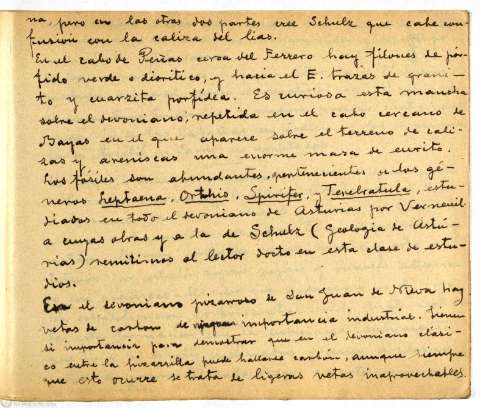 na, pero en las otras dos partes cree Schulz que cabe con-
fusión con la caliza del lias.
En el cabo de Peñas cerca del Ferrero hay filones de pór-
fido verde o diorítico, y hacia el E. trazas de grani-
to y cuarzita porfídea. Es curiosa esta mancha
sobre el devoniano, repetida en el cabo cercano de
Bayas en el que aparece sobre el terreno de cali-
zas y areniscas una enorme masa de eurito.
Los fósiles son abundantes, pertenecientes a los gé-
neros Leptaena, Orthis, Spirifer, y Terebratula, estu-
diados en todo el devoniano de Asturias por Verneuil
a cuyas obras y a la de Schulz (Geología de Astú-
rias) remitimos al lector docto en esta clase de estu-
dios.
En el devoniano pizarroso de San Juan de Nieva hay
vetas de carbón de importancia industrial. Tienen
si importancia para demostrar que en el devoniano clasi-
co entre la pizarrilla puede hallarse carbón, aunque siempre
que esto ocurre se trata de ligeras vetas inaprovechables.